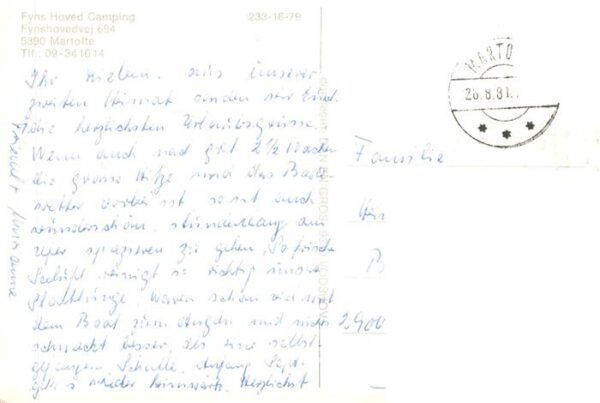 Fyns Hoved Camping
Fynshovedvej 694
5390 Martofte
Tlf.: 09-341614
233-16-79
MARTO
28.8.81.
Ihr Lieben, aus unserer
zweiten Heimat senden wir Euch
die herzlichsten Urlaubsgrüsse.
Wenn auch nach gut 2 1/2 Wochen
die grosse Hitze und das Bade-
wetter vorbei ist so ist auch
wunderschön, stundenlang am
Ufer spazieren zu gehen. So frische
Seeluft reinigt so richtig unsere
Stadtlunge. Waren schon viel mit
dem Boot zum Angeln und nichts
schmeckt besser, als eine selbst-
gefangene Scholle. Anfang Sept.
geht's wieder heimwärts. Herzlichst
Familie
2900